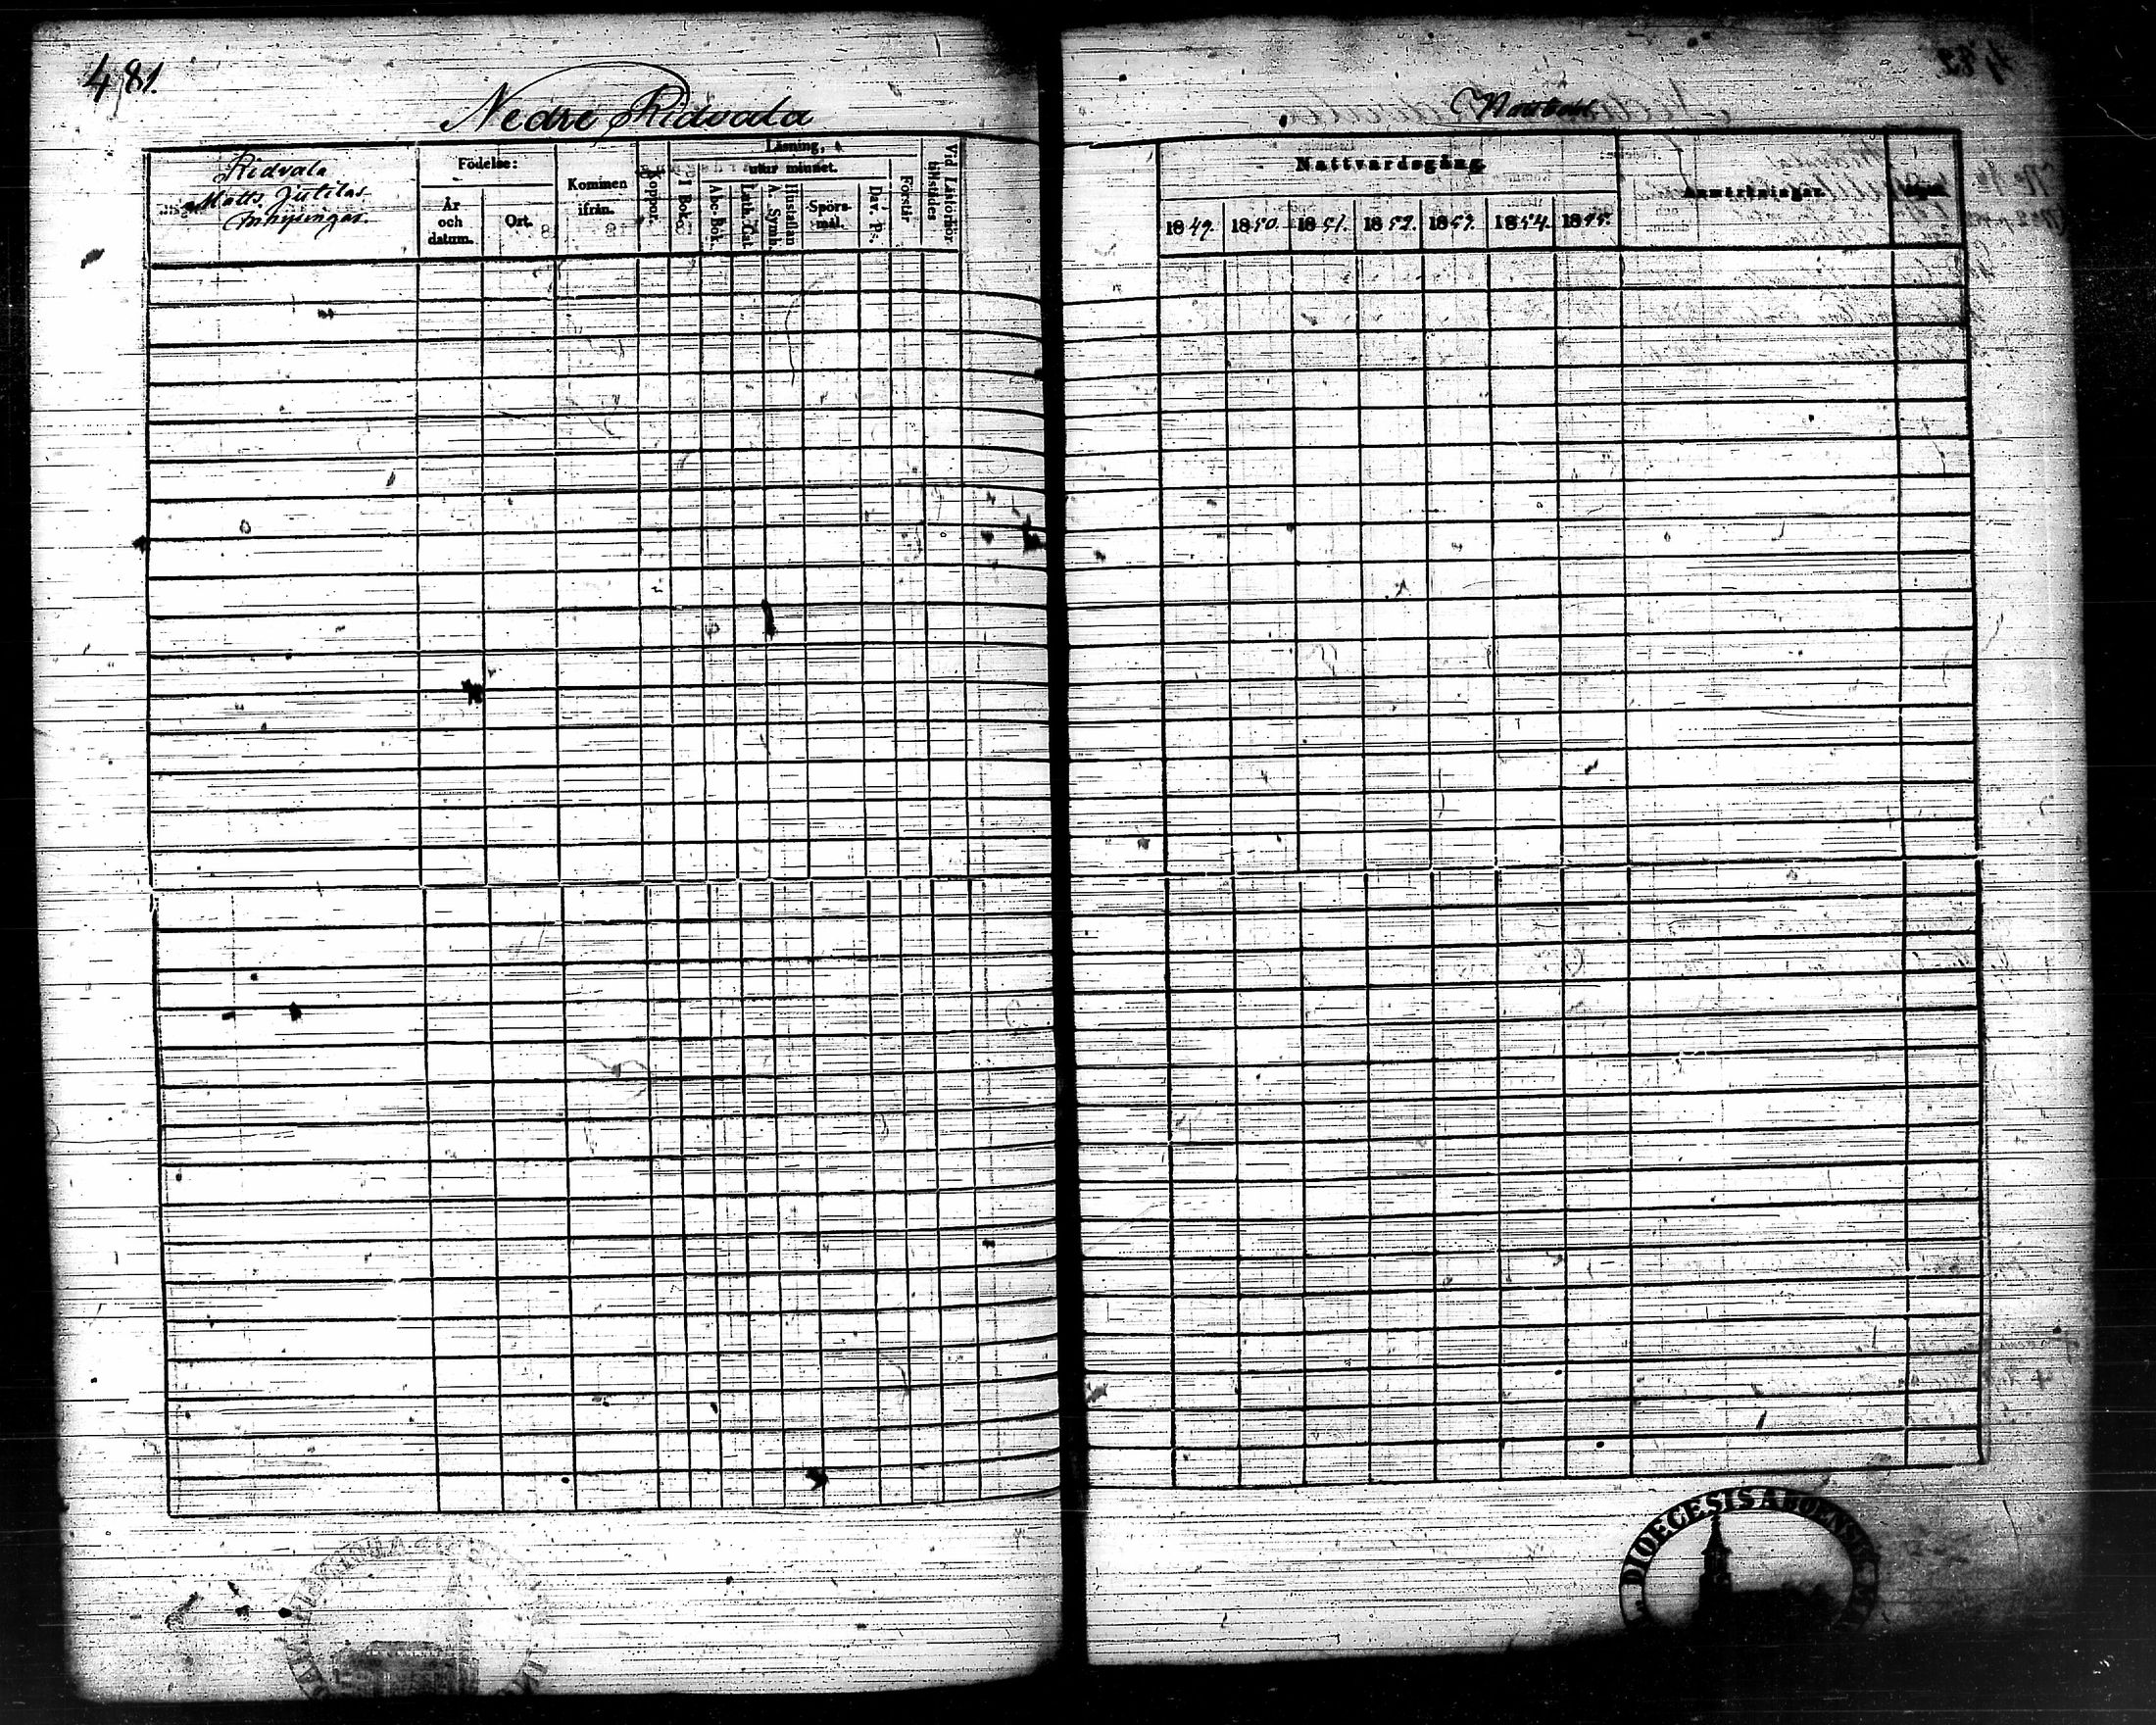 481.
Nedre Ridvala
Ridvala
Matts. Jutilas
Inhysingar.
Födelse:
År
och
datum.
Ort.
Kommen
ifrån.
Koppor.
Läsning,
utur minnet.
I Bok.
Abc-Bok.
Luth. Cat.
A. Symb.
Hustaflan
Spörs-
mål.
Dav. Ps.
Förstår
Vid Läsförhör
tillstädes
Nattvardsgång
1849. 1850. 1851. 1852. 1853. 1854. 1855.
Anmärkningar.
DIOECESIS ABOENSIS